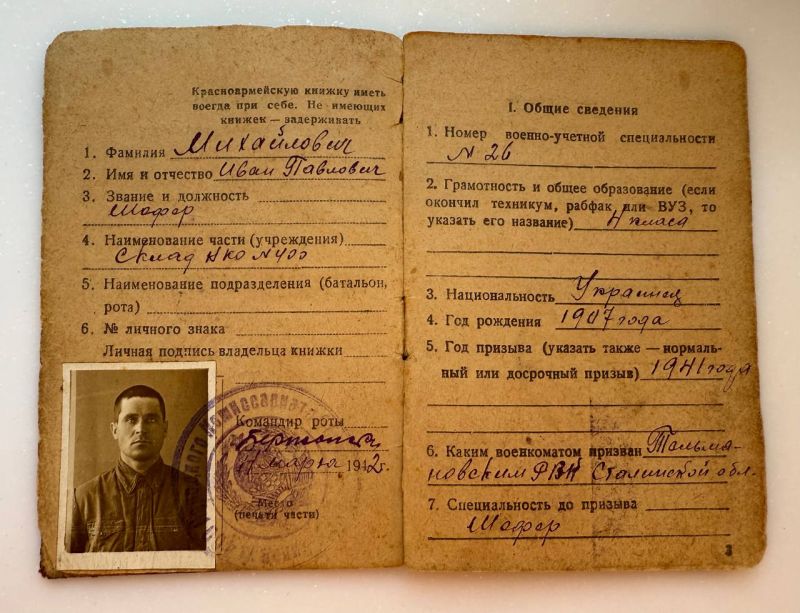 Красноармейскую книжку иметь
всегда при себе. Не имеющих
книжек — задерживать
1. Фамилия Михайлович
2. Имя и отчество Иван Павлович
3. Звание и должность
Шофер
4. Наименование части (учреждения)
Склад НКО №400
5. Наименование подразделения (батальон,
рота)
6. № личного знака
Личная подпись владельца книжки
Командир роты
марта 1942 г.
Место
(печати части)
I. Общие сведения
1. Номер военно-учетной специальности
№ 26
2. Грамотность и общее образование (если
окончил техникум, рабфак или ВУЗ, то
указать его название) 4 класа
3. Национальность Украинец
4. Год рождения 1907 года
5. Год призыва (указать также — нормаль-
ный или досрочный призыв) 1941 года
6. Каким военкоматом призван Тельма-
новским РВК Сталинской обл.
7. Специальность до призыва
Шофер
3